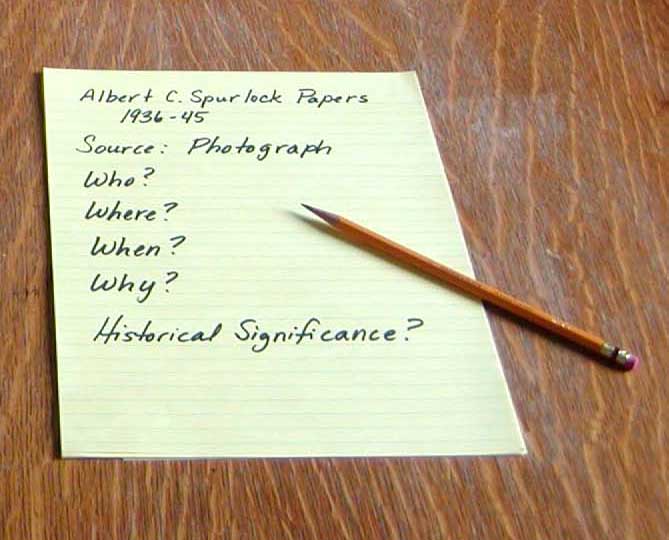 Albert C. Spurlock Papers
1936-45
Source: Photograph
Who?
Where?
When?
Why?
Historical Significance?